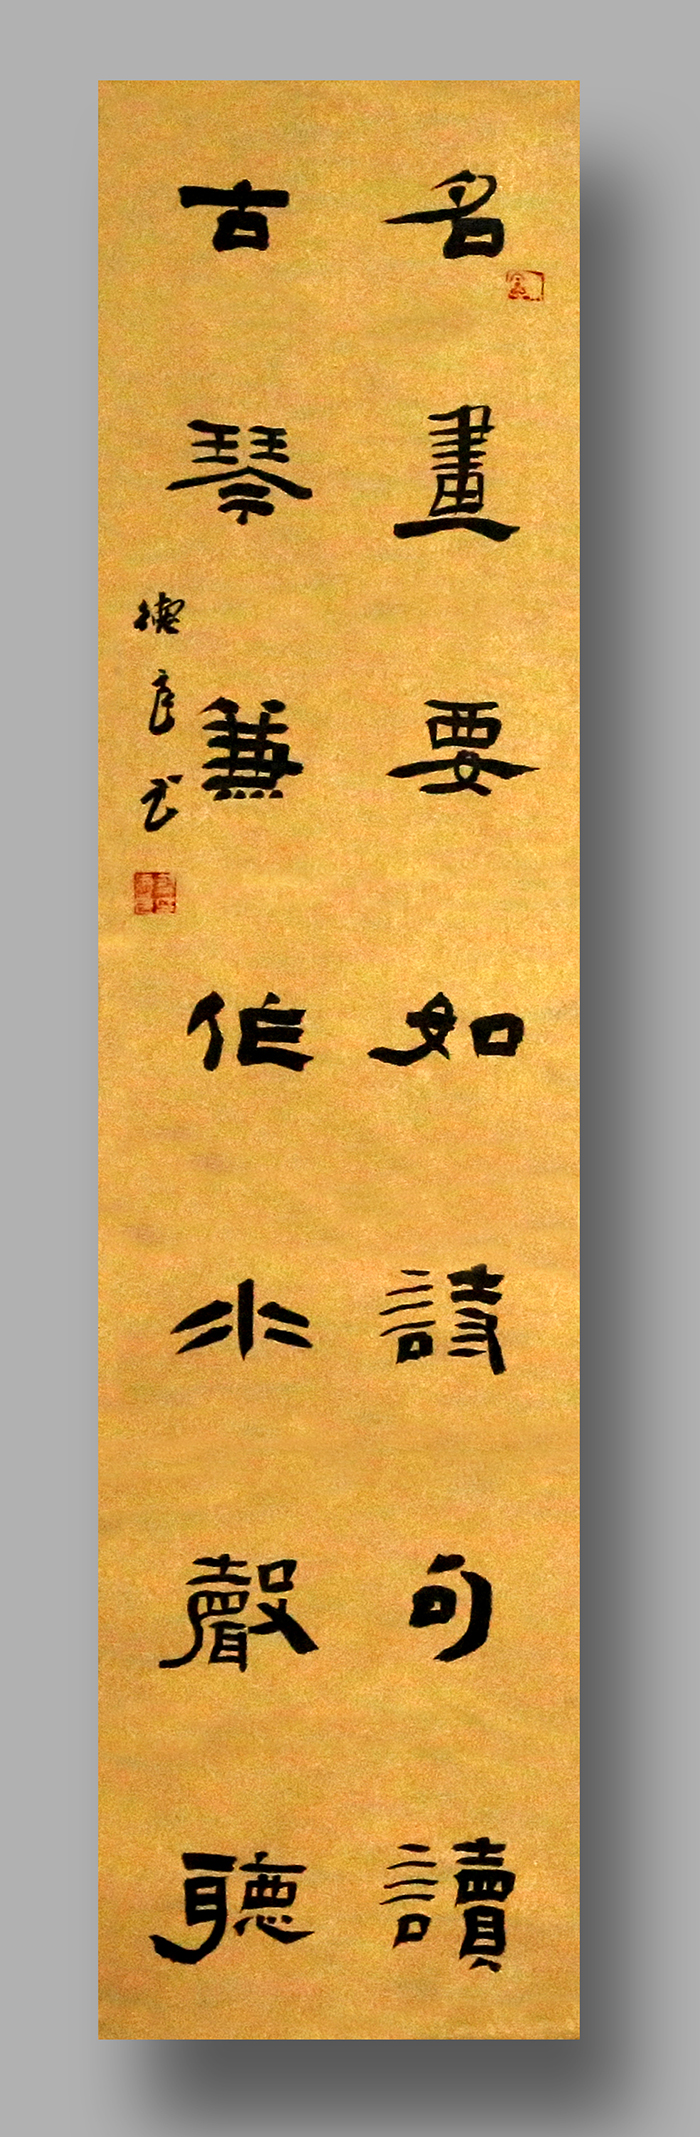 名畫要如詩句讀
古琴兼作水聲聽
德良書